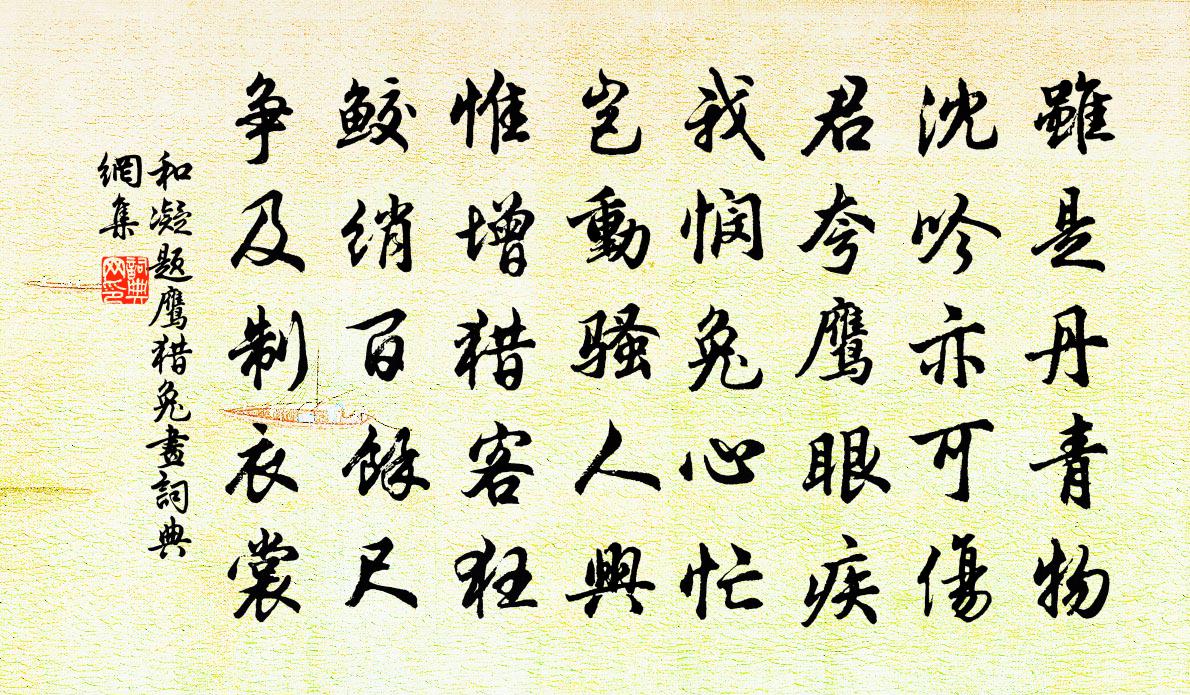 雖是丹青物
沈吟亦可傷
君夸鷹眼疾
我憫兔心忙
岂動騷人興
惟增猎客狂
鮫綃百餘尺
争及制衣裳
和凝题鹰猎兔畫詞典
網集
詞典网印